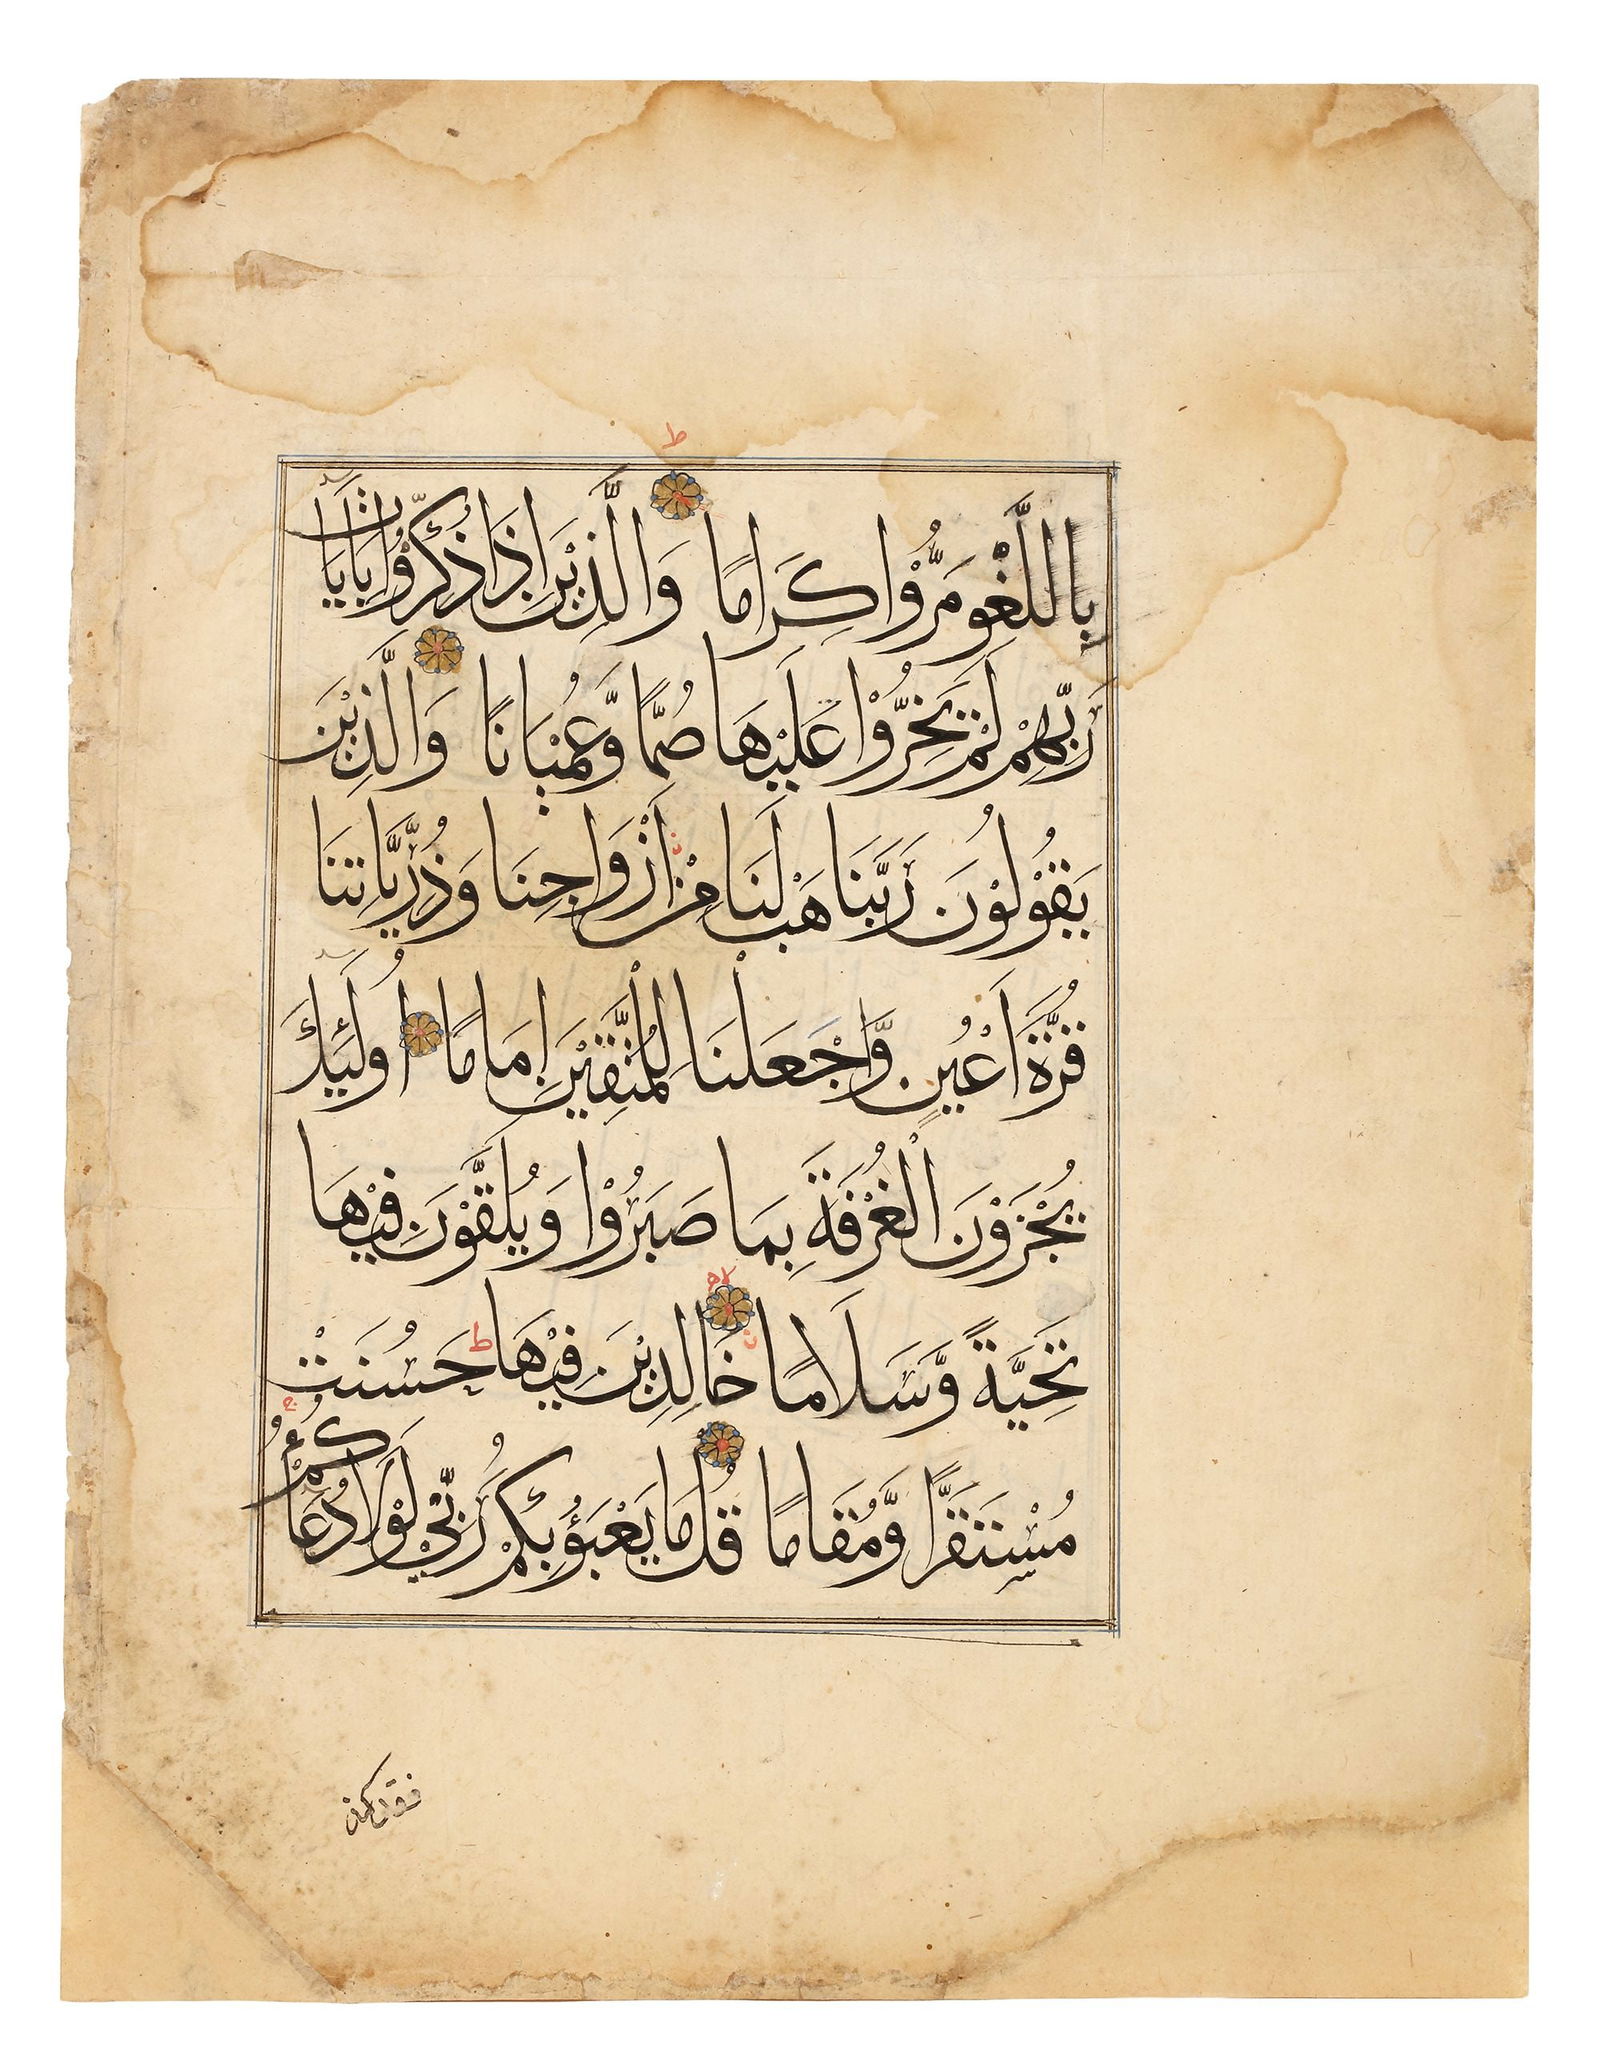 ط
بِاللَّغْوِ مَرُّوْا كِرَامًا وَالَّذِيْنَ اِذَا ذُكِّرُوْا بِاٰيَاتِ
رَبِّهِمْ لَمْ يَخِرُّوْا عَلَيْهَا صُمًّا وَّعُمْيَانًا وَالَّذِيْنَ
يَقُوْلُوْنَ رَبَّنَا هَبْ لَنَا مِنْ اَزْوَاجِنَا وَذُرِّيَّاتِنَا
قُرَّةَ اَعْيُنٍ وَّاجْعَلْنَا لِلْمُتَّقِيْنَ اِمَامًا اُولٰٓئِكَ
يُجْزَوْنَ الْغُرْفَةَ بِمَا صَبَرُوْا وَيُلَقَّوْنَ فِيْهَا
تَحِيَّةً وَّسَلَامًا خَالِدِيْنَ فِيْهَا ط حَسُنَتْ
مُسْتَقَرًّا وَّمُقَامًا قُلْ مَا يَعْبَؤُ بِكُمْ رَبِّيْ لَوْلَا دُعَاؤُكُمْ
فقد كذ